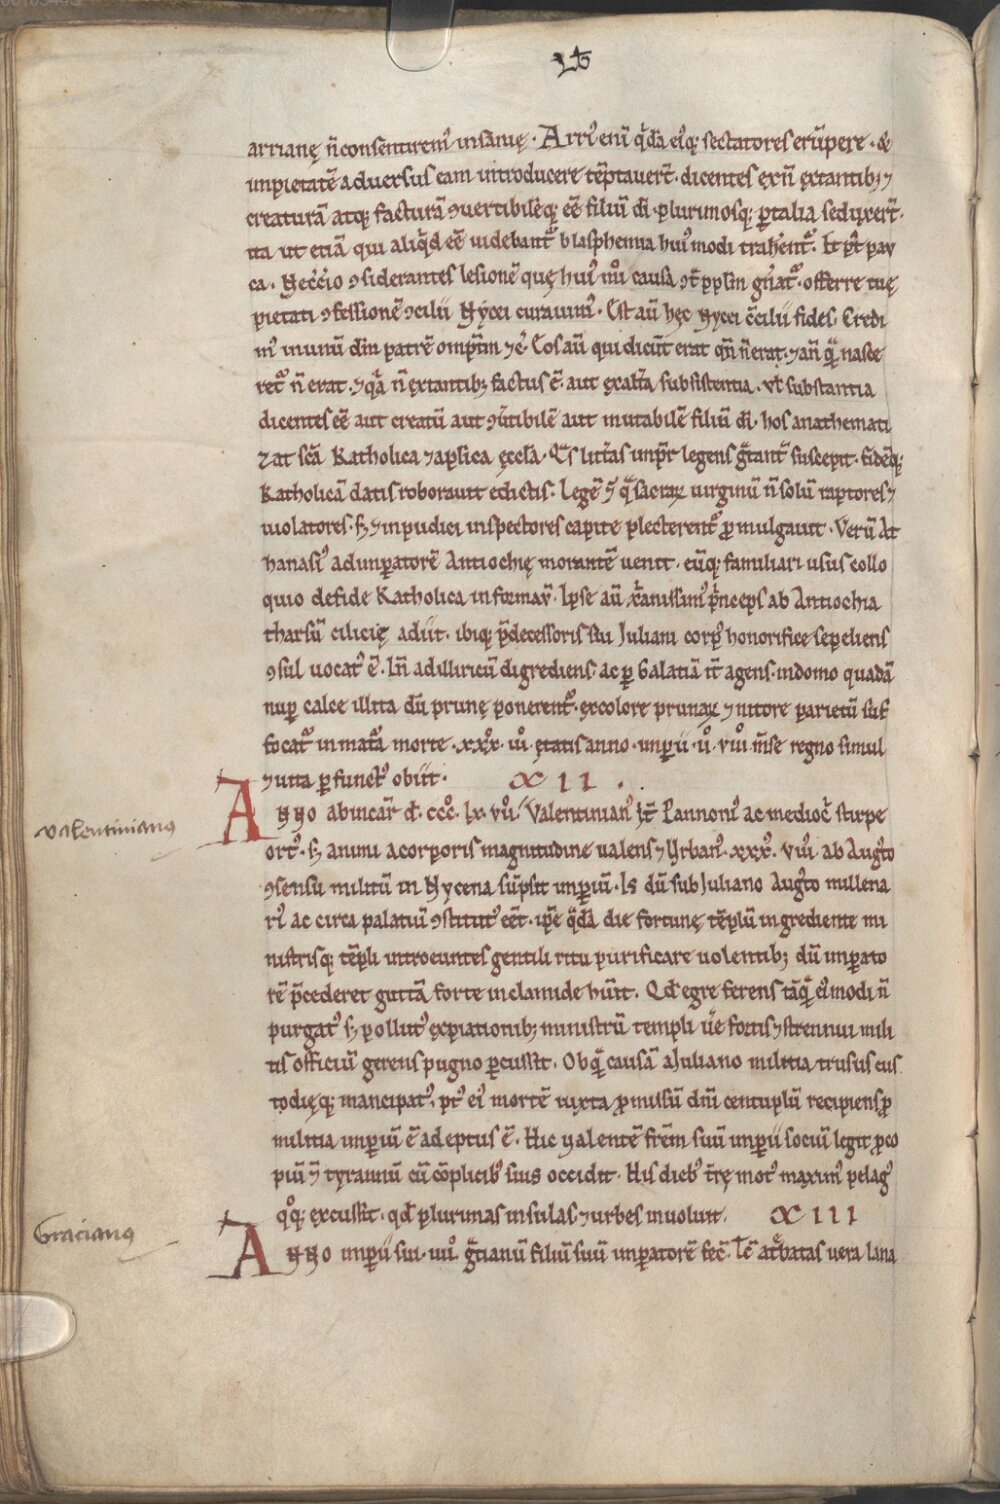 arrianę ñ consentirem᾿ insanię · Arri᾿ eni̅ q̇da̅ ei᾿q; sectatores eru̅pere · &
impietate̅ aduersus eam introducere te̅ptauer̅t · dicentes ex ñ extantib; ⁊
creatura̅ atq; factura̅ ꝯuertibile̅q; ee̅ filiu̅ di̅ · plurimosq; ꝑ talia seduxer̅t ·
ita ut etia̅ qui aliq̇d ee̅ uidebant᾿ blasphemia hui᾿ modi trahe̅nt᾿ · Et p᾿t pau
ca ·
pietati ꝯfessione̅ ꝯcilii Nycei curauim᾿ · Est au̅ hęc Nycei c̅cilii fides · Credi
m᾿ in unu̅ dm̅ patre̅ omp̅tm ⁊c᾿ · Eos au̅ qui dicu̅t erat qn̅ ñ erat · ⁊ an̅ qua̅ nasce
ret᾿ ñ erat · ⁊ q̇a ñ extantib; factus e̅ · aut ex alt̅a subsistentia · ut̅ substantia
dicentes ee̅ aut creatu̅ aut ꝯu̅tibile̅ aut mutabile̅ filiu̅ di̅ · hos anathemati
zat sc̅a Katholica ⁊ apl̅ica ęcc̅la · Q̅s litt̅as imp̅r legens g̅tant᾿ suscepit · fide̅q;
Katholica̅ datis roborauit edictis · Lege̅ q̅ sacraꝝ uirginu̅ ñ solu̅ raptores ⁊
uiolatores · s; ⁊ inpudici inspectores capite plecterent᾿ ꝓmulgauit · Veru̅ At
hanasi᾿ ad imꝑatore̅ Antiochię morante̅ uenit · eu̅q; familiari usus collo
quio de fide Katholica informaṽ · Ipse au̅ xp̅ianissim᾿ p̅nceps ab Antiochia
tharsu̅ cilicię adiit · ibiq; p̅decessoris sui Juliani corp᾿ honorifice sepeliens
ꝯsul uocat᾿ e̅ · In̅ ad illiricu̅ digrediens · ac ꝑ Galatia̅ it̅ agens · in domo quada̅
nuꝑ calce illita du̅ prunę ponerent᾿ · ex colore prunaꝝ ⁊ nitore parietu̅ suf
focat᾿ inmat̅a morte · xxx᾿ · iii᾿ · ętatis anno · imꝑii · u᾿ · viii᾿ m̅se regno simul
⁊ uita ꝑfunct᾿ obiit · XII ·
Anno ab incar̅ d̅ · ccc᾿ · lx · vii᾿ Valentinian᾿ Pannoni᾿ ac medioc᾿ stirpe
ort᾿ · s; animi ac corporis magnitudine ualens ⁊ Urban᾿ · xxx᾿ · viii᾿ ab Aug̅to
ꝯsensu militu̅ in Nycena su̅psit imꝑiu̅ · Is du̅ sub Juliano Aug̅to millena
ri᾿ ac circa palatiu̅ ꝯstitut᾿ eet̅ · ip̅e q̇da̅ die fortunę te̅plu̅ ingrediente mi
nistrisq; te̅pli introeuntes gentili ritu purificare uolentib; du̅ imꝑato
re̅ p̅cederet gutta̅ forte in clamide hu̅it · Qd̅ egre ferens ta̅q̇ ei᾿modi ñ
purgat᾿ s; pollut᾿ expiationib; ministru̅ templi ue̅ fortis ⁊ strennui mili
tis officiu̅ gerens pugno ꝑcussit · Ob q̅ causa̅ a Juliano militia trusus cus
todięq; mancipat᾿ · p᾿t ei᾿ morte̅ iuxta ꝓmissu̅ dn̅i centuplu̅ recipiens ꝓ
militia imꝑiu̅ e̅ adeptus e̅ · Hic ualente̅ fre̅m suu̅ imꝑii sociu̅ legit ꝓco
piu̅ q̅ tyrannu̅ cu̅ co̅plicib᾿ suis occidit · His dieb᾿ t̅rę mot᾿ maxim᾿ pelag᾿
q᾿q; excussit · qd̅ plurimas insulas ⁊ urbes inuoluit · XIII
Anno imꝑii sui · iiii᾿ g̅tianu̅ filiu̅ suu̅ imꝑatore̅ fec̅ · Te̅ at᾿batas uera lana
valentinianus
Gracianus